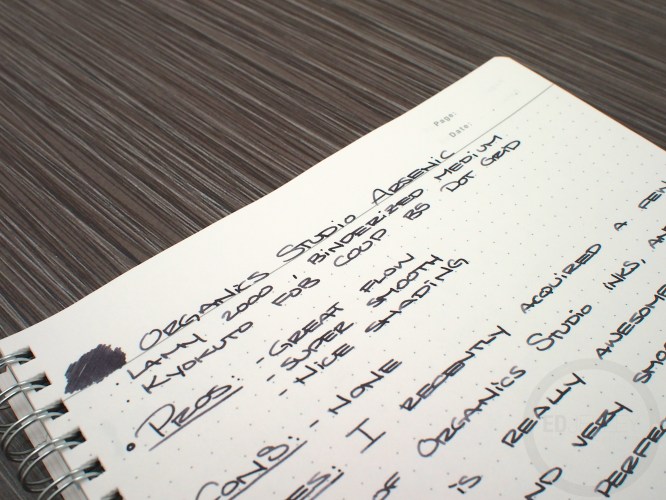 Page:
Date:
ORGANICS STUDIO ARSENIC
· LAMY 2000, BINDERIZED MEDIUM
· KYOKUTO FOB COUP B5 DOT GRID
· PROS: - GREAT FLOW
- SUPER SMOOTH
- NICE SHADING
CONS: - NONE
I RECENTLY ACQUIRED A FEW
OF ORGANICS STUDIO INKS, AN
IS REALLY AWESOME
VERY SMOO
PERFEC